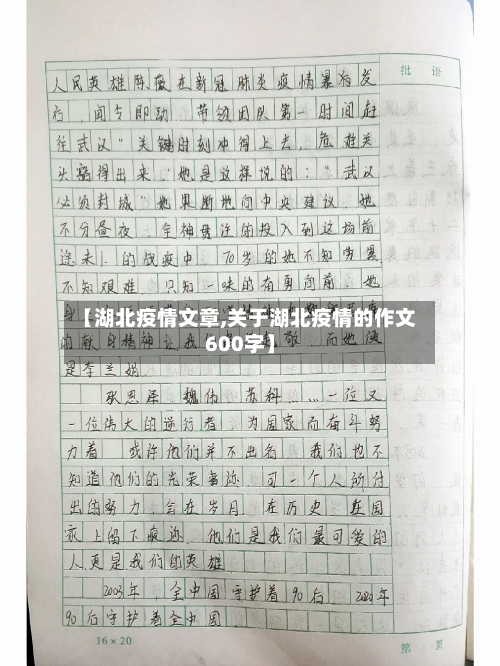 批 语
人民英雄陈薇在新冠肺炎疫情暴发
后，闻令即动，带领团队第一时间赶
往武汉"关键时刻冲得上去，危难关
头豁得出来"她是这样说的："武汉
必须封城"她果断地向中央建议，她
不分昼夜，全神贯注的投入到这场前
途未卜的战疫中，70岁的她不知劳累
不知艰难，只知一味的奋勇向前，她
【湖北疫情文章,关于湖北疫情的作文
600字】
是李兰娟
张思泽 魏伟 苏科……一位又
一位伟大的逆行者，为国家而奋斗努
力着，或许他们并不出名，我们也不
知道他们的光荣事迹，可一个人所付
出的努力，会在岁月，在历史，在国
家上留下痕迹，他们是我们最可爱的
人，更是我们的英雄
2003年，全中国守护着90后，2020年
90后守护着全中国，
16×20
第 页